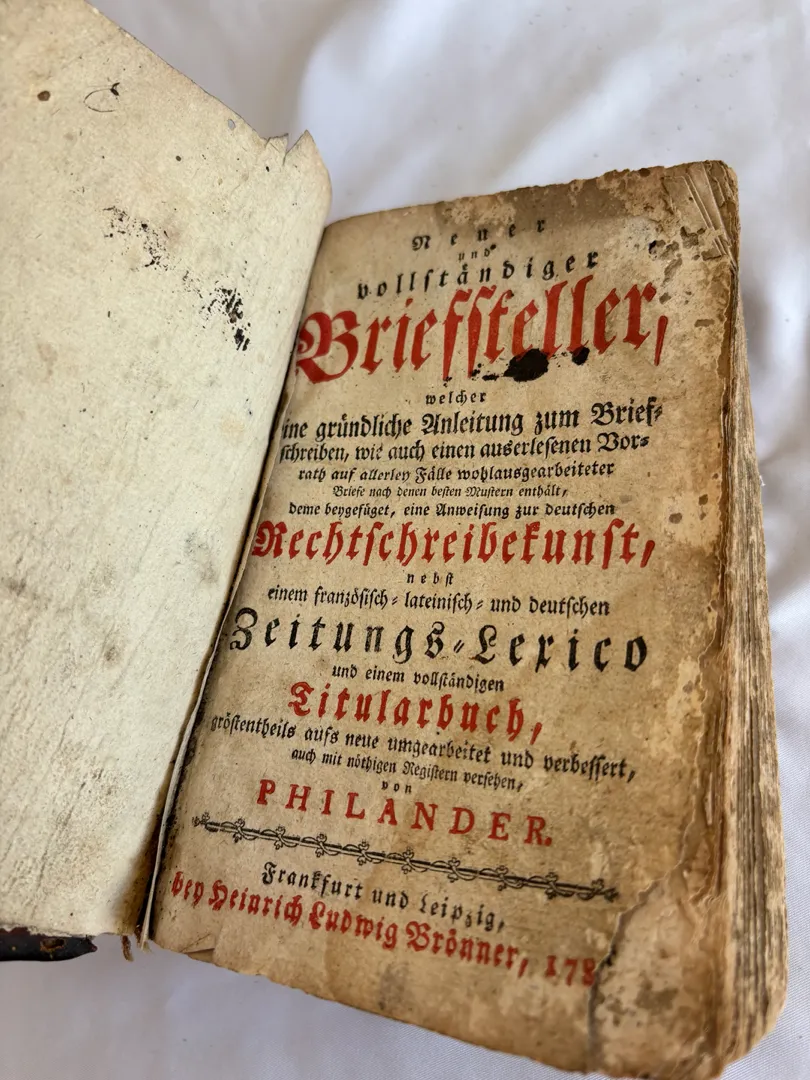 Neuer
und
vollständiger
Briefsteller,
welcher
eine gründliche Anleitung zum Brief-
schreiben, wie auch einen auserlesenen Vor-
rath auf allerley Fälle wohlausgearbeiteter
Briefe nach denen besten Mustern enthält,
deme beygefüget, eine Anweisung zur deutschen
Rechtschreibekunst,
nebst
einem französisch-lateinisch- und deutschen
Zeitungs-Lexico
und einem vollständigen
Titularbuch,
gröstentheils aufs neue umgearbeitet und verbessert,
auch mit nöthigen Registern versehen,
von
PHILANDER.
Frankfurt und Leipzig,
bey Heinrich Ludwig Brönner,